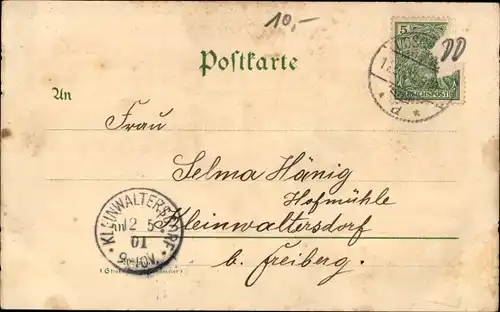 10,-
5
DD
REICHSPOST
Postkarte
An
Frau
Selma Hänig
Hofmühle
Kleinwaltersdorf
b. Freiberg.
KLEINWALTERSDORF
12 5
01
9-10V.